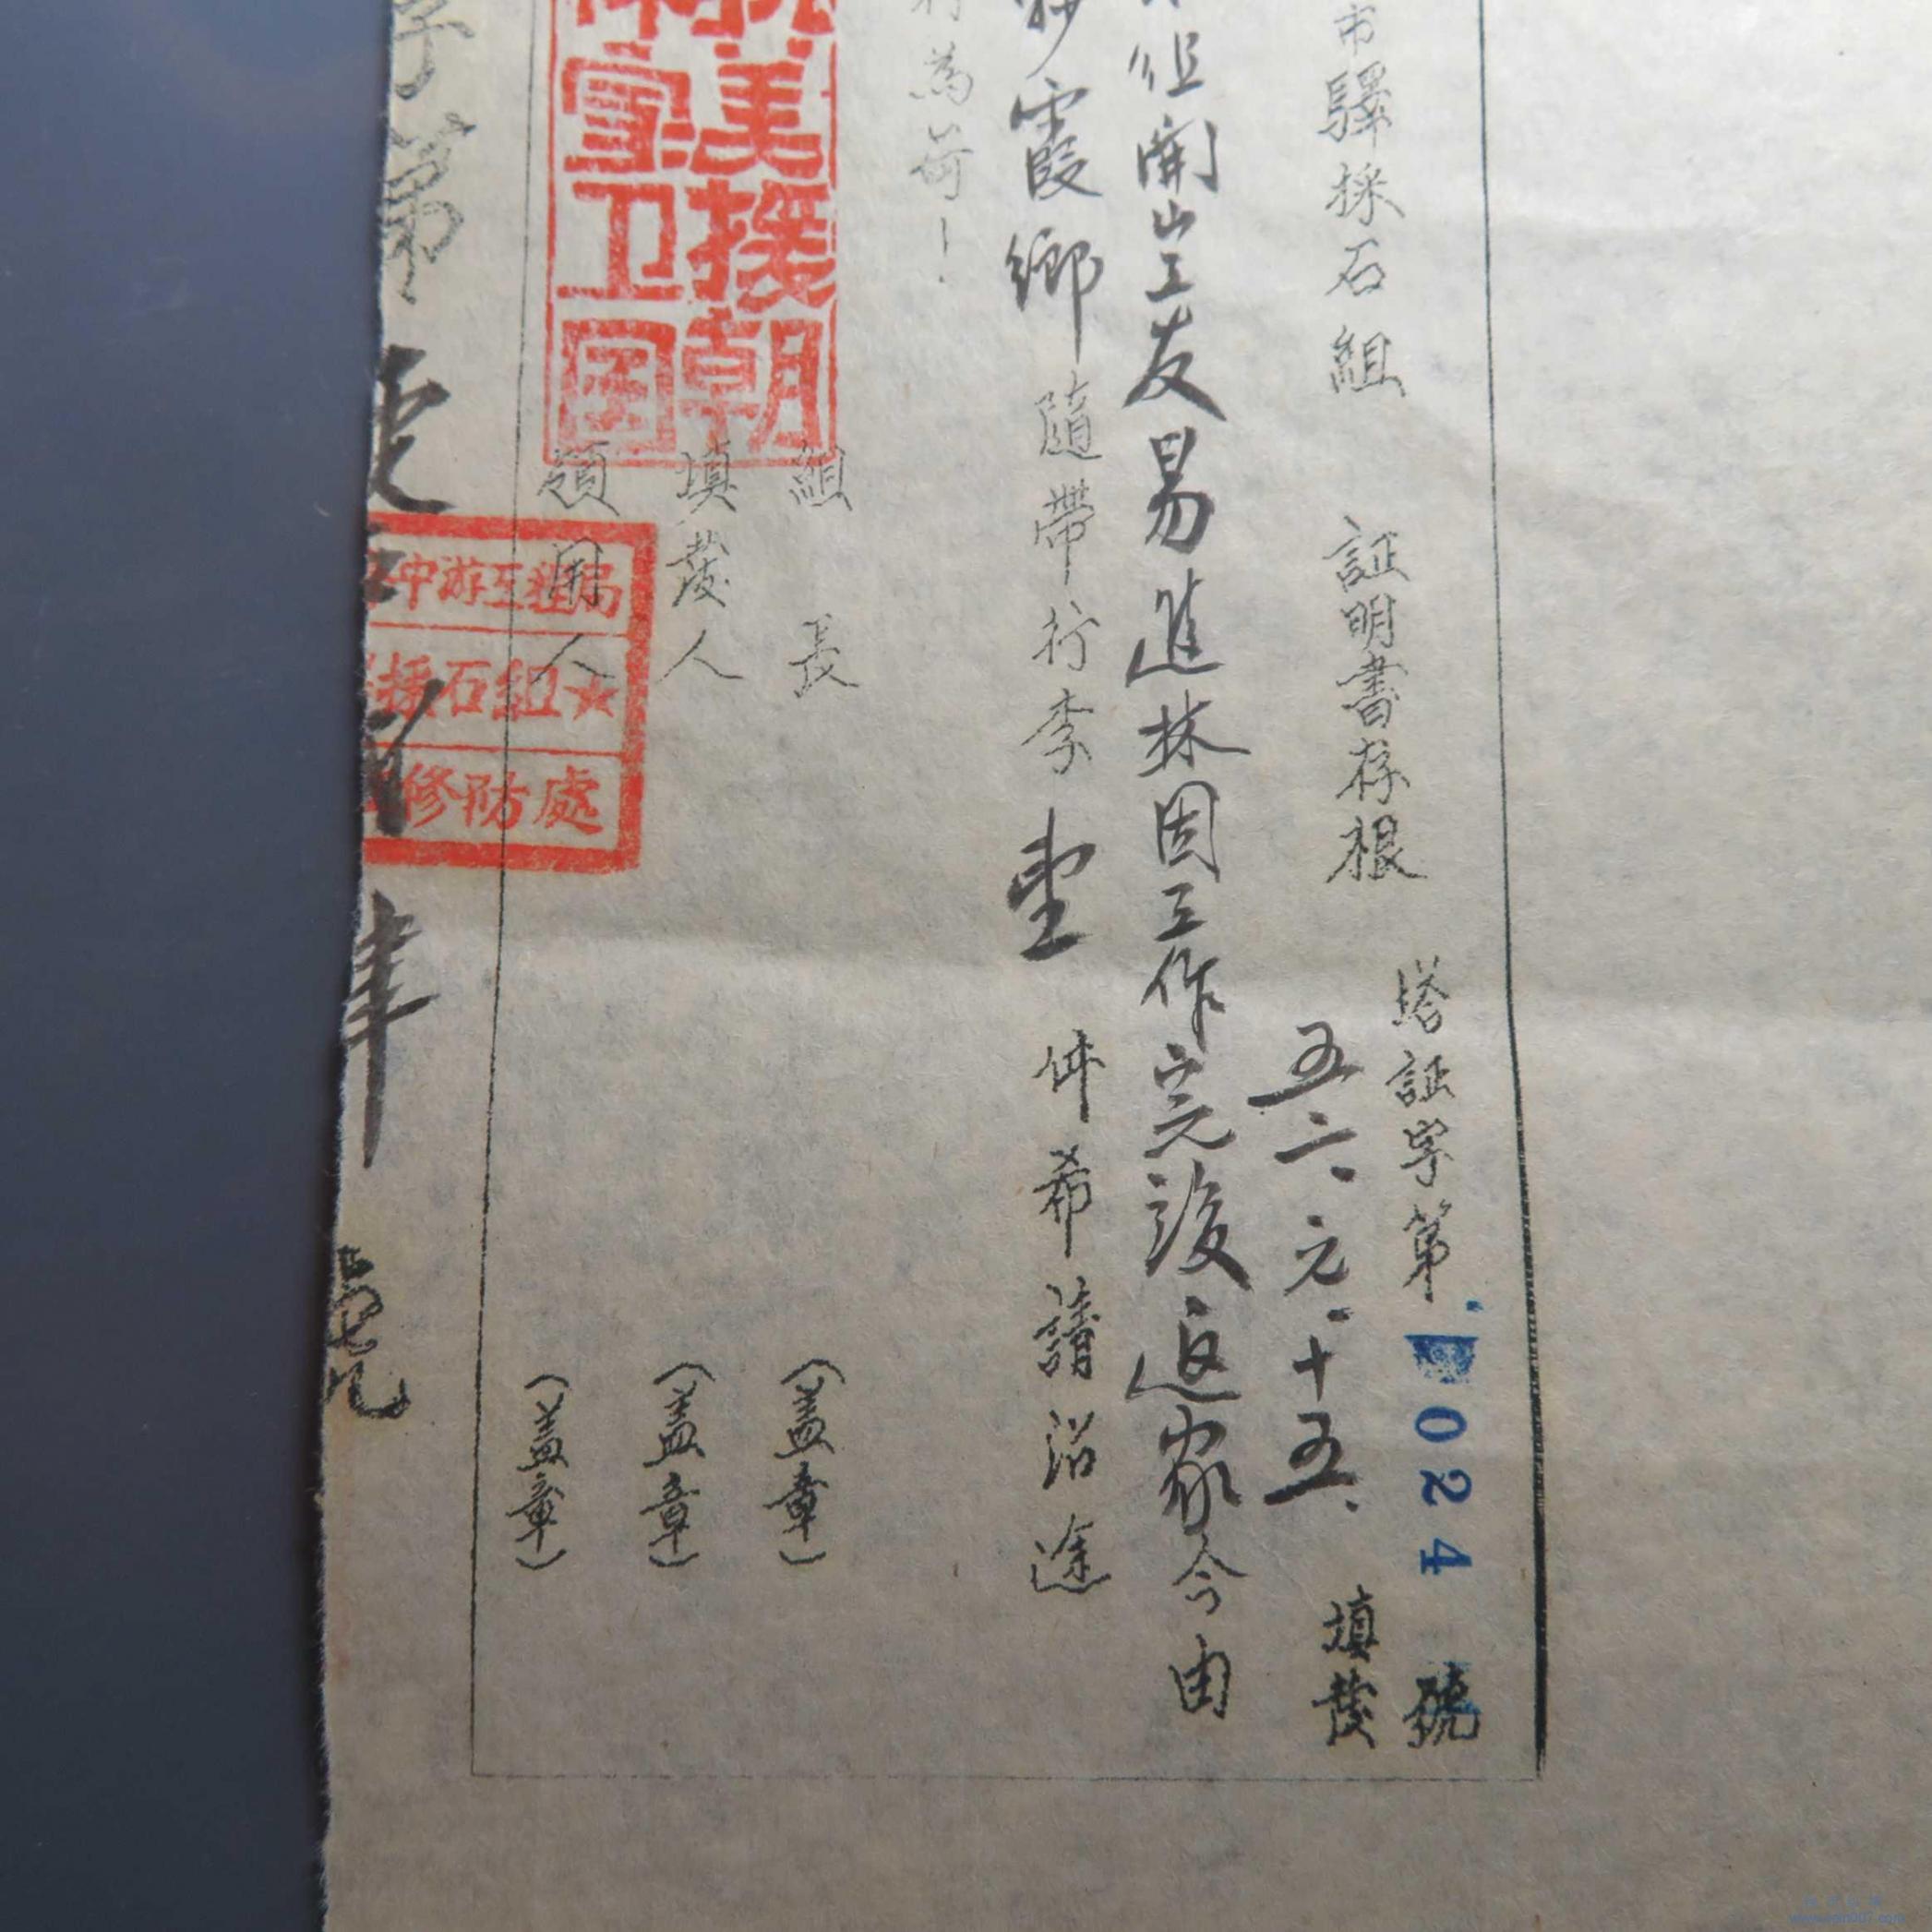 市驛採石組 証明書存根
塔証字第 024 號
五六.元.十五. 填發
組開山工友易進林因工作完竣返家今由
霞鄉隨帶行李壹件希請沿途
為荷!
組長 (盖章)
填發人 (盖章)
領用人 (盖章)
美援朝
家卫国
中游工程局
採石組★
修防處
字第
肆號